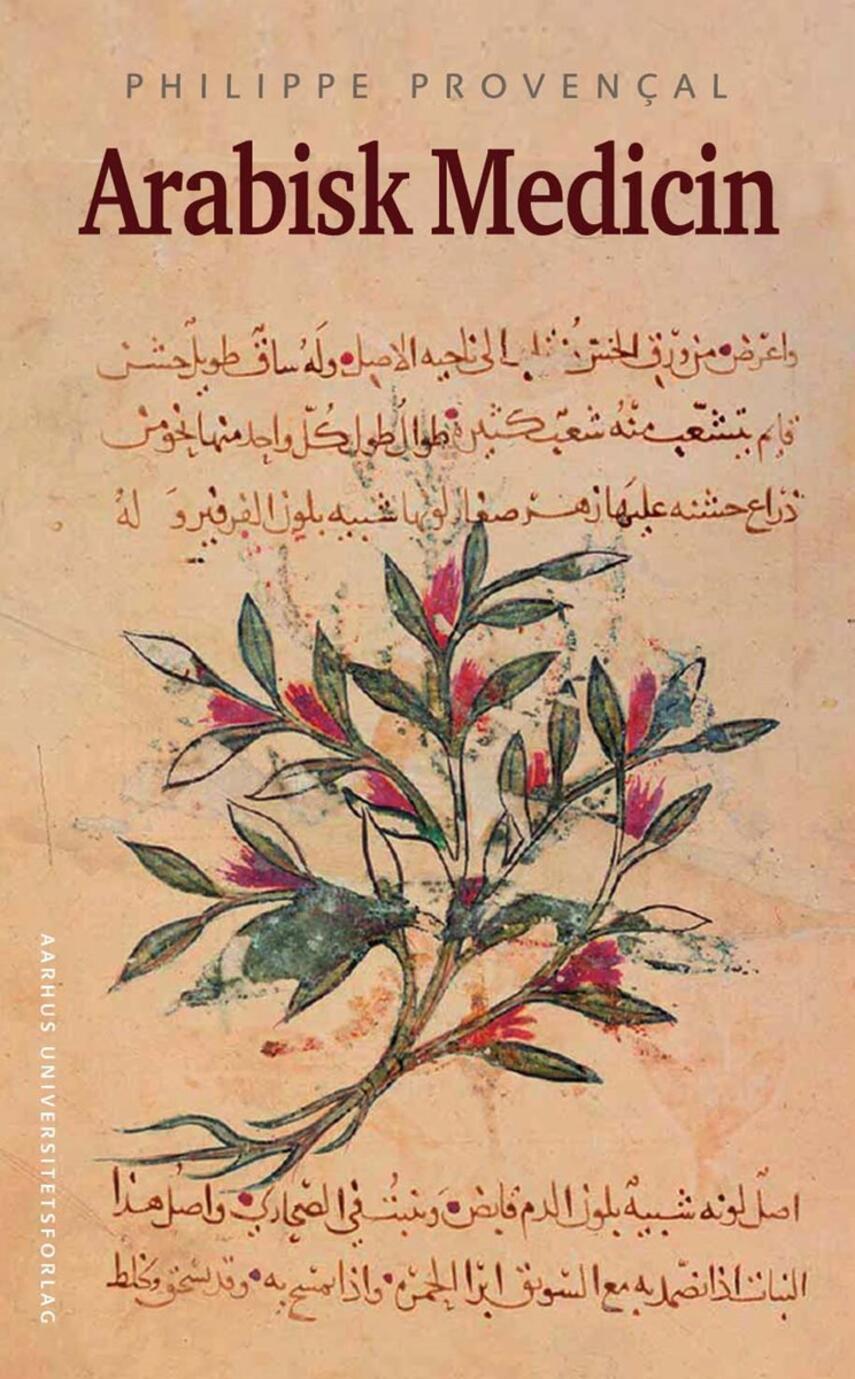 PHILIPPE PROVENÇAL
Arabisk Medicin
واعرض من ورق الخس الى ناحيه الاصل ولَهُ ساقٌ طويلٌ خشن
قايم يتشعّب منهُ شعبٌ كثيرة طوالٌ طول كُلّ واحد منها نحو من
ذراع خشنه عليها زهر صغار لونها شبيه بلون الفرفير وَ لهُ
اصلٌ لونه شبيهٌ بلون الدم قابض وَينبتُ في الصّحاري واصل هذا
النبات اذا تضمد به مع السويق ابرا الحمرة واذا تمسح به وقد سحق وخلط
AARHUS UNIVERSITETSFORLAG